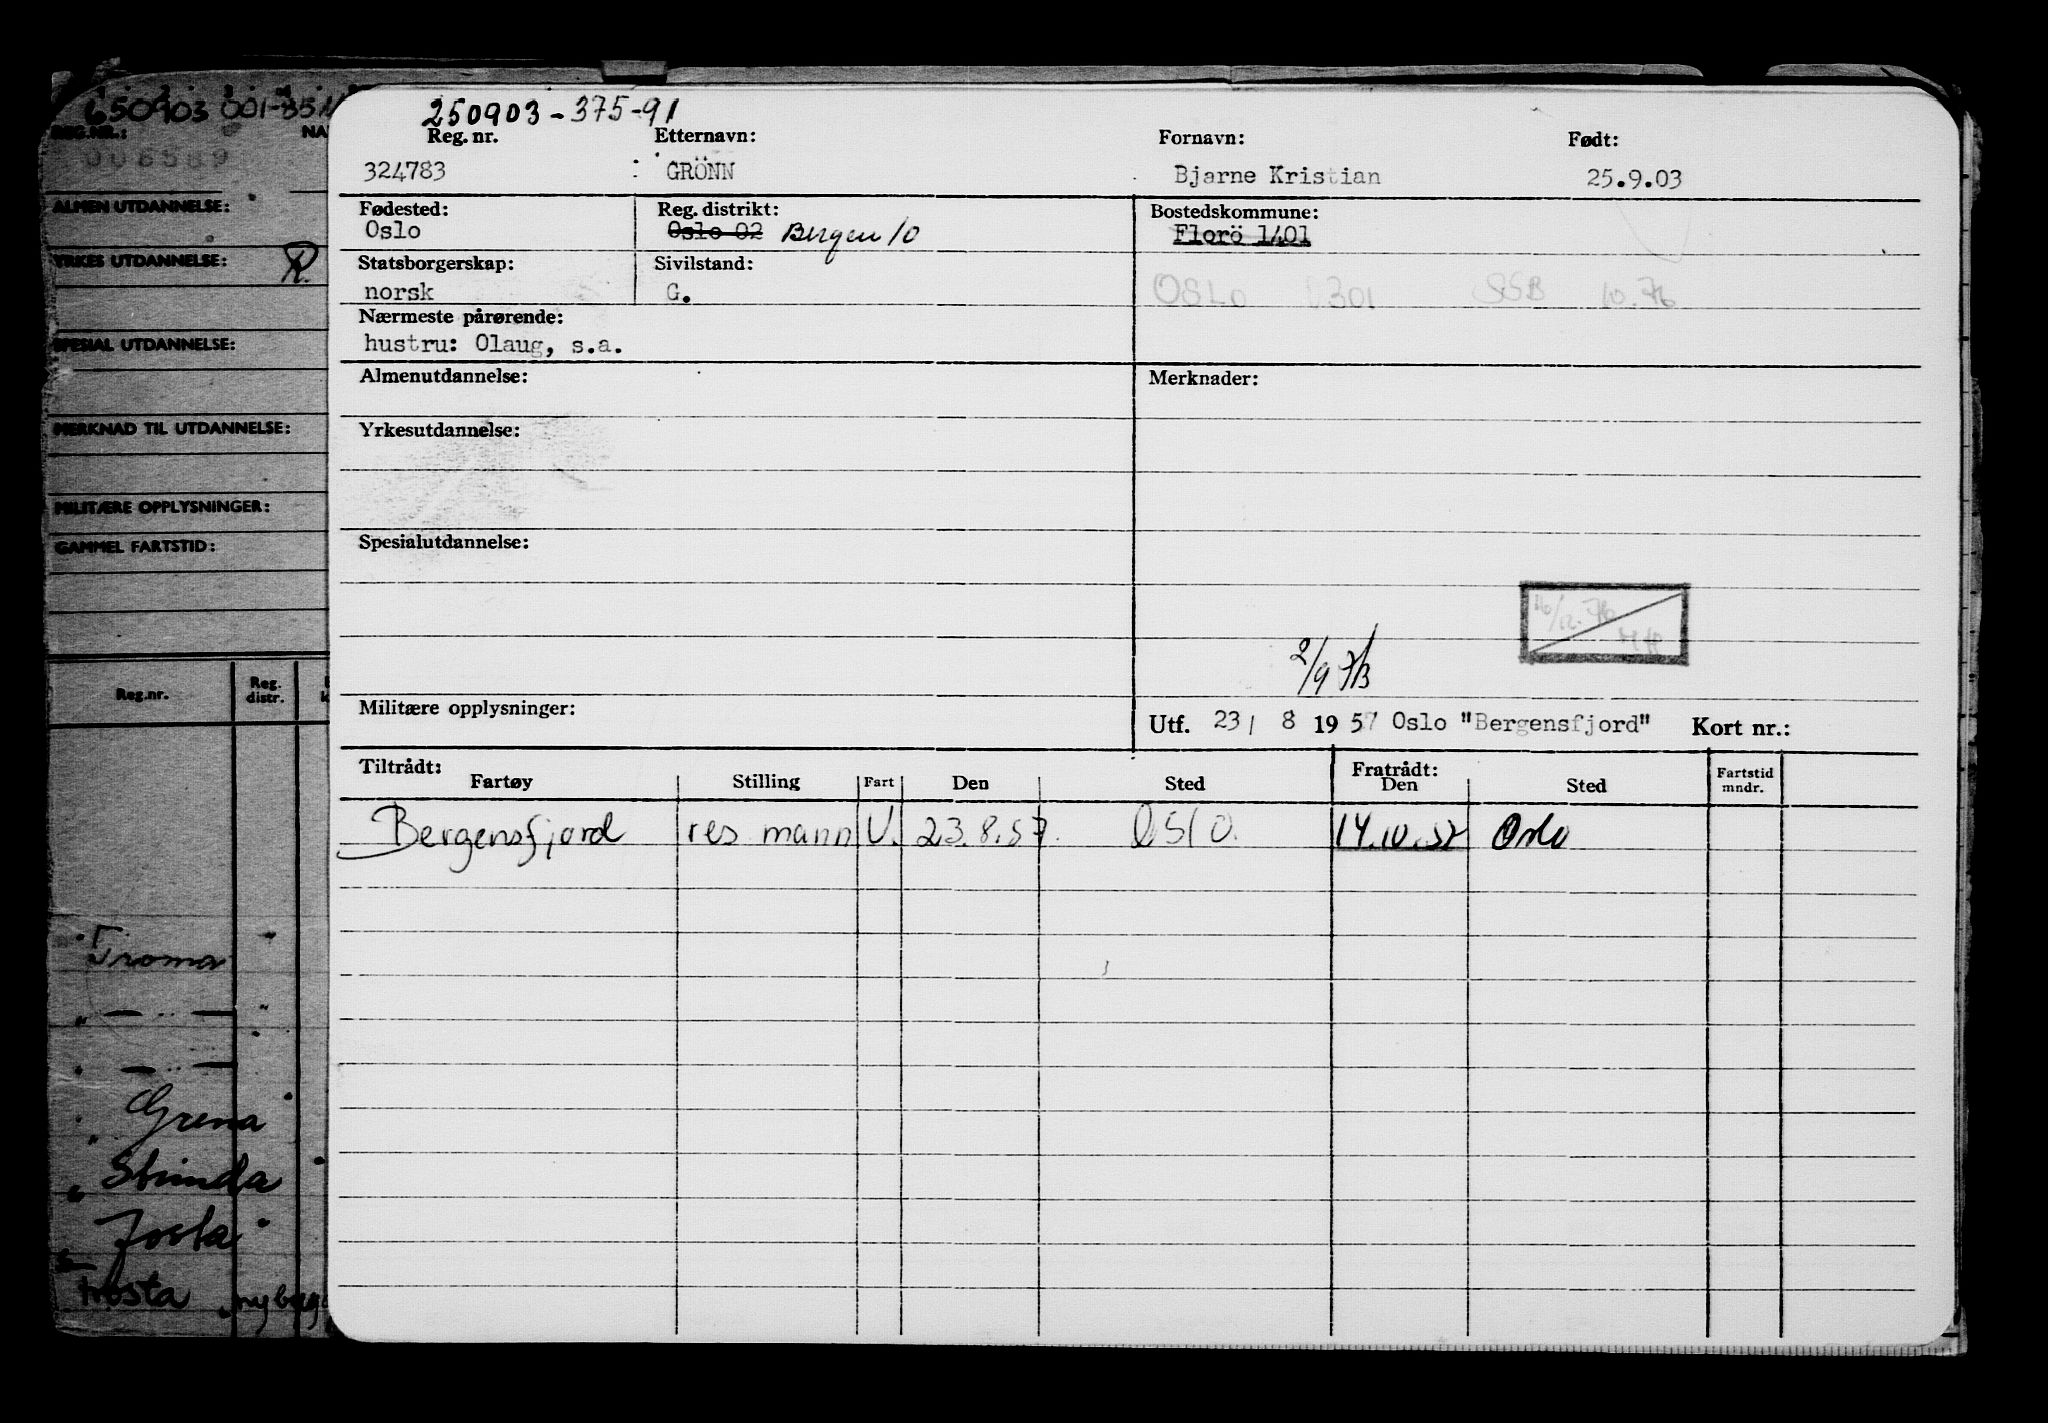 650903 001-35
REG.NR.: NA
008589
ALMEN UTDANNELSE:
YRKES UTDANNELSE: R.
SPESIAL UTDANNELSE:
MERKNAD TIL UTDANNELSE:
MILITÆRE OPPLYSNINGER:
GAMMEL FARTSTID:
Reg.nr. Reg. distr.
Troma
" — " —
" — " —
" Grena
" Stunda
" Josta
trosta
250903-375-91
Reg. nr. Etternavn: Fornavn: Født:
324783 : GRÖNN Bjarne Kristian 25.9.03
Fødested: Reg. distrikt: Bostedskommune:
Oslo Oslo 02 Bergen 10 Florö 1401
Statsborgerskap: Sivilstand:
norsk G. OSLO 0301 SSB 10.76
Nærmeste pårørende:
hustru: Olaug, s.a.
Almenutdannelse: Merknader:
Yrkesutdannelse:
Spesialutdannelse:
Militære opplysninger:
Utf. 23/ 8 1957 Oslo "Bergensfjord" Kort nr.:
Tiltrådt: Fratrådt:
Fartøy Stilling Fart Den Sted Den Sted Fartstid mndr.
Bergensfjord res mann U. 23.8.57. OSLO. 14.10.57 Oslo